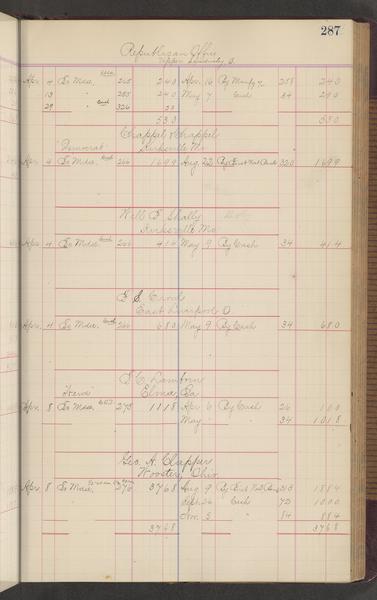 287
Republican Office
Upper Sandusky O.
Apr. 4 To Mdse. 265 240 Apr. 16 By 258 240
13 " 285 240 May 7 " Cash 34 290
29 " Cash 326 50
530 530
Chappel & Chappel
"Democrat" Kirksville Mo
Apr. 4 To Mdse. 266 1699 Aug 22 By First Nat Bank 320 1699
Will E.
Kirksville Mo
Apr. 4 To Mdse. 266 414 May 9 By Cash 34 414
E. S.
East Liverpool O
Apr. 4 To Mdse. 266 680 May 9 By Cash 34 680
S. C.
Elmer,
Apr. 8 To Mdse. 275 1118 Apr. 6 By Cash 26 100
May " 34 1018
Geo. A. Clapper
Wooster, Ohio
Apr. 8 To Mdse. 276 3768 Aug 9 By First Nat Bank 313 1884
Sept 26 " Cash 72 1000
Nov. 5 " 84 884
3768 3768